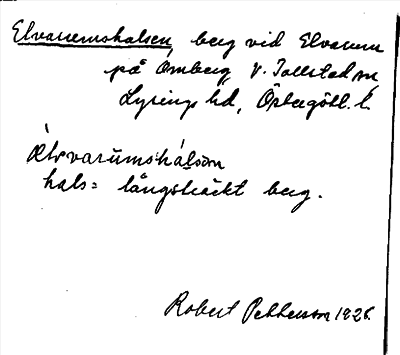 Elvarumshalsen, berg vid Elvarum
på Omberg V. Tollstad sn,
Lysings hd, Östergötl. l.
Älvarumshálsen
hals = långsträckt berg.
Robert Pettersson 1928.